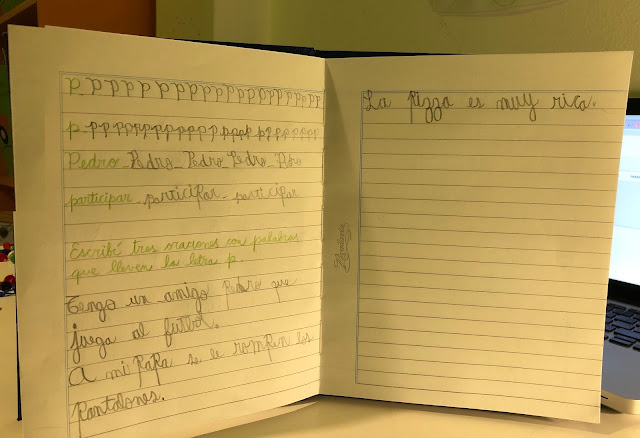 p p p p p p p p p p p p p p p p p p p p
p p p p p p p p p p p p p p p p p p p p
Pedro_Pedro_Pedro_Pedro_Pedro
participar_participar_participar
Escribé tres oraciones con palabras
que lleven la letra p.
Tengo un amigo pedro que
juega al futbol.
A mi papa se le rompen los
pantalones.
La pizza es muy rica.